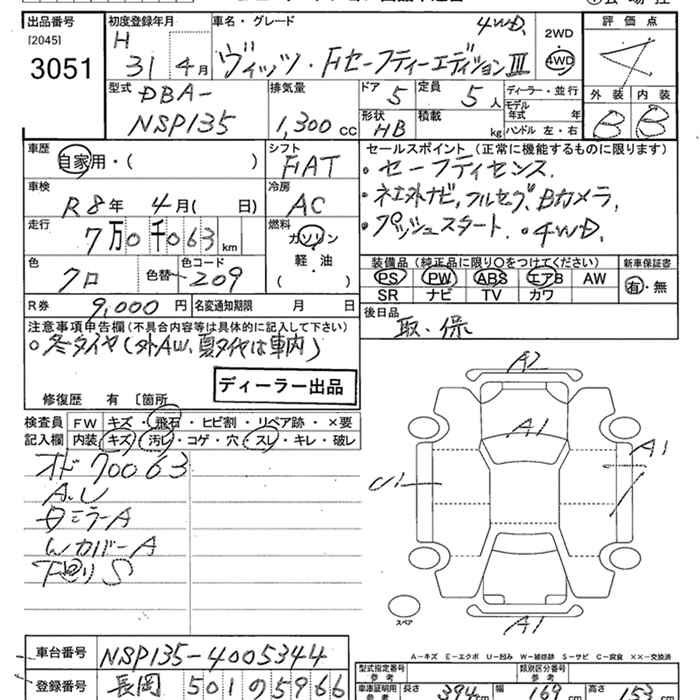 出品番号 初度登録年月 車名・グレード 2WD 評価点
[2045] H 31 4月 ヴィッツ・Fセーフティーエディション III 4WD 4WD 4
3051
型式 排気量 ドア 定員 ディーラー・並行 外装 内装
DBA- 5 5人 モデル年式 年 B B
NSP135 1,300cc 形状 HB 積載 kg ハンドル 左・右
車歴 シフト セールスポイント(正常に機能するものに限ります)
自家用・( ) FAT ・セーフティセンス.
車検 冷房 ・ネエ外ナビ,フルセグ,Bカメラ,
R8年 4月( 日) AC ・プッシュスタート.・4WD,
走行 燃料
7万0千063km ガソリン
色 色替 色コード 軽・油 装備品(純正品に限り○をつけてください) 新車保証書
クロ 209 ( ) PS PW ABS エアB AW 有・無
SR ナビ TV カワ
R券 9,000円 名変通知期限 月 日 後日品
注意事項申告欄(不具合内容等は具体的に記入して下さい) 取・保
○冬タイヤ(外AW,夏タイヤは車内)
ディーラー出品
修復歴 有 〔箇所
検査員 FW キズ・飛石・ヒビ割・リペア跡・×要
記入欄 内装 キズ・汚レ・コゲ・穴・スレ・キレ・破レ
オド70063
A.U
ミラーA
WカバーA
下回りS
A2
A1
A1
U1
A1
スペア
A−キズ E−エクボ U−凹み W−補修跡 S−サビ C−腐食 ××−交換済
車台番号 NSP135-4005344
型式指定番号 参考 類別区分番号 参考
登録番号 長岡 501 の 5966
車適証明用 参考 長さ 394cm 幅 169cm 高さ 153cm